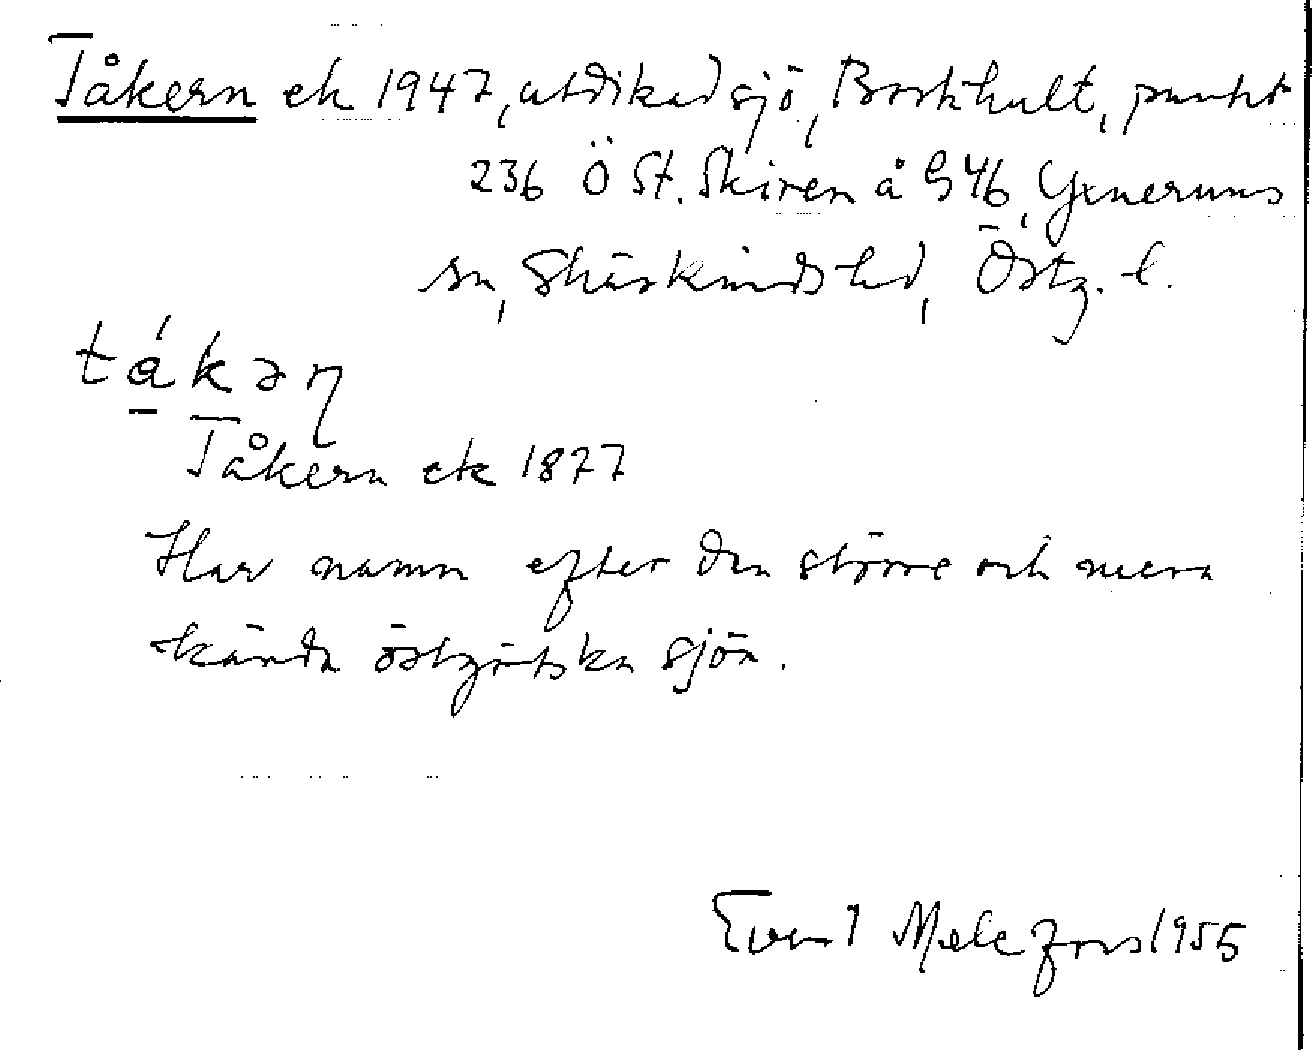 Tåkern ek 1947, utdikad sjö, Borkhult, punkt
236 Ö St. Skiren å G46, Yxnerums
sn, Skärkinds hd, Östg. l.
tá̱kəɳ
Tåkern ek 1877
Har namn efter den större och mera
kända östgötska sjön.
Evert Melefors 1955